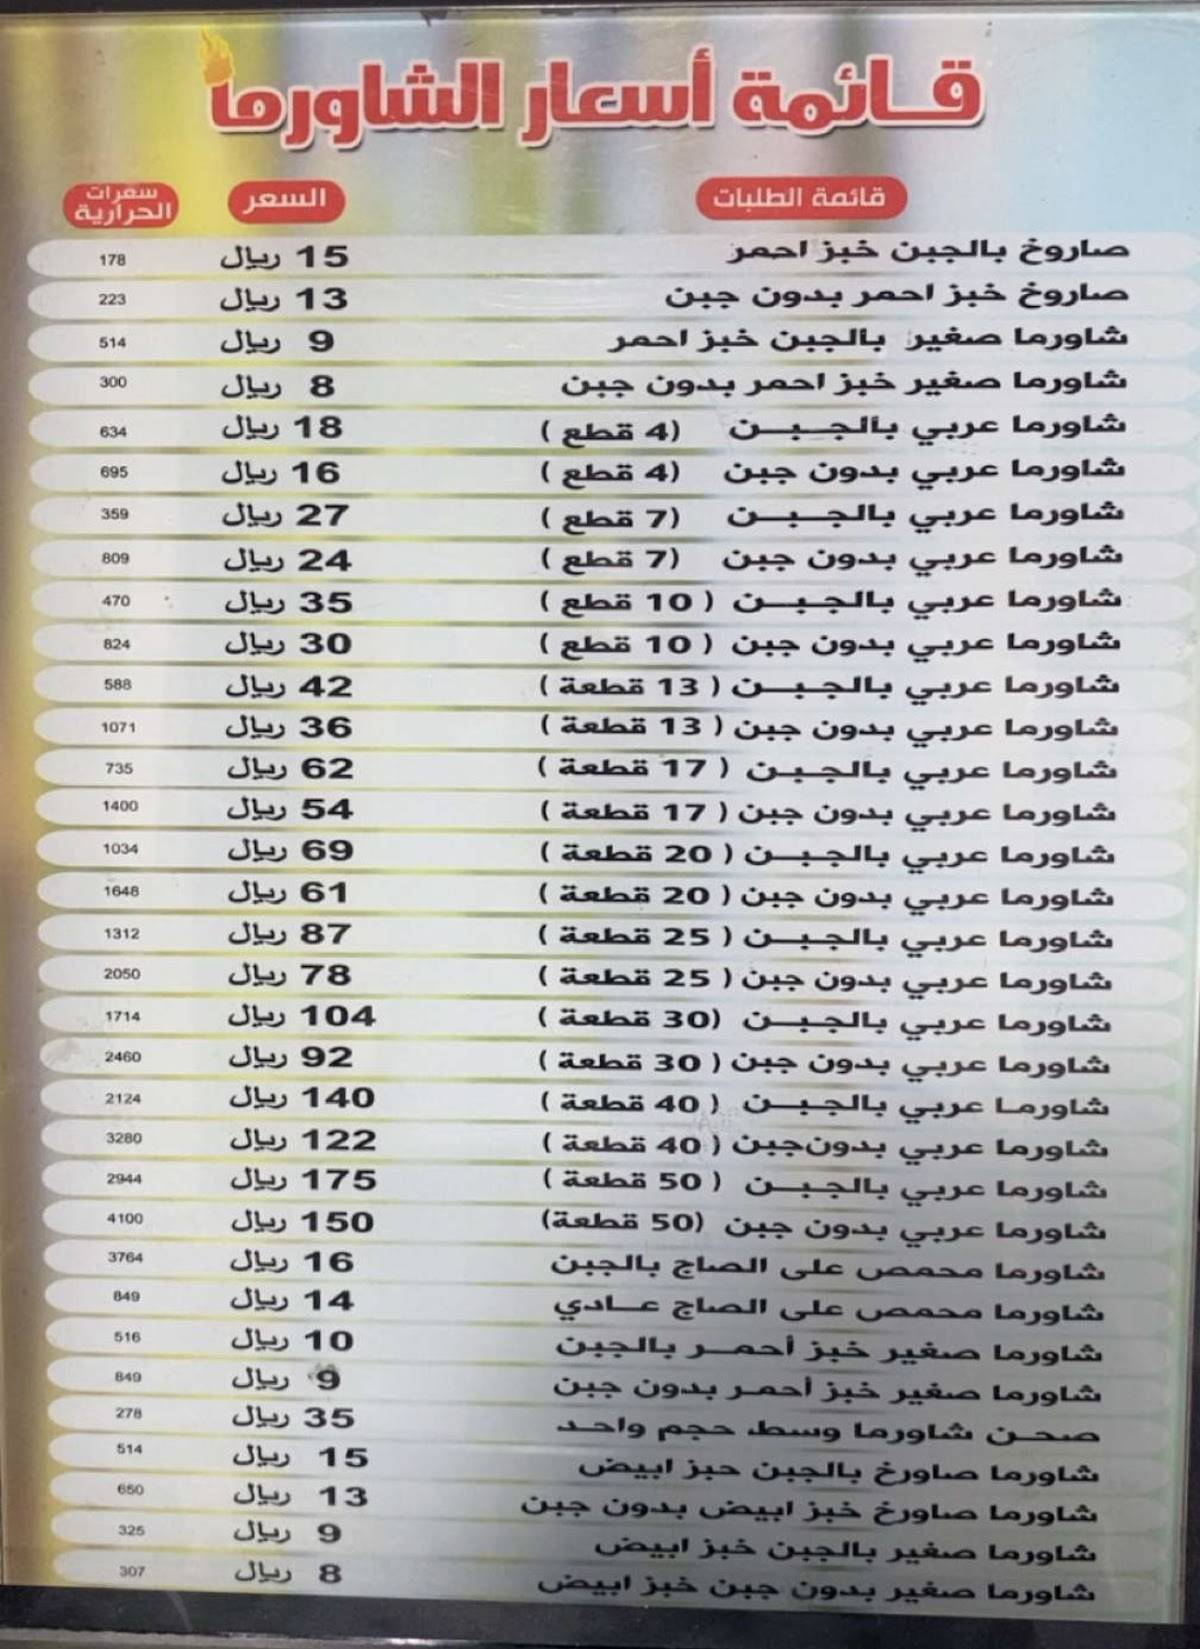 قائمة أسعار الشاورما
قائمة الطلبات السعر سعرات الحرارية
صاروخ بالجبن خبز احمر 15 ريال 178
صاروخ خبز احمر بدون جبن 13 ريال 223
شاورما صغير بالجبن خبز احمر 9 ريال 514
شاورما صغير خبز احمر بدون جبن 8 ريال 300
شاورما عربي بالجبن (4 قطع) 18 ريال 634
شاورما عربي بدون جبن (4 قطع) 16 ريال 695
شاورما عربي بالجبن (7 قطع) 27 ريال 359
شاورما عربي بدون جبن (7 قطع) 24 ريال 809
شاورما عربي بالجبن (10 قطع) 35 ريال 470
شاورما عربي بدون جبن (10 قطع) 30 ريال 824
شاورما عربي بالجبن (13 قطعة) 42 ريال 588
شاورما عربي بدون جبن (13 قطعة) 36 ريال 1071
شاورما عربي بالجبن (17 قطعة) 62 ريال 735
شاورما عربي بدون جبن (17 قطعة) 54 ريال 1400
شاورما عربي بالجبن (20 قطعة) 69 ريال 1034
شاورما عربي بدون جبن (20 قطعة) 61 ريال 1648
شاورما عربي بالجبن (25 قطعة) 87 ريال 1312
شاورما عربي بدون جبن (25 قطعة) 78 ريال 2050
شاورما عربي بالجبن (30 قطعة) 104 ريال 1714
شاورما عربي بدون جبن (30 قطعة) 92 ريال 2460
شاورما عربي بالجبن (40 قطعة) 140 ريال 2124
شاورما عربي بدون جبن (40 قطعة) 122 ريال 3280
شاورما عربي بالجبن (50 قطعة) 175 ريال 2944
شاورما عربي بدون جبن (50 قطعة) 150 ريال 4100
شاورما محمص على الصاج بالجبن 16 ريال 3764
شاورما محمص على الصاج عادي 14 ريال 849
شاورما صغير خبز أحمر بالجبن 10 ريال 516
شاورما صغير خبز أحمر بدون جبن 9 ريال 849
صحن شاورما وسط حجم واحد 35 ريال 278
شاورما صاورخ بالجبن حبز ابيض 15 ريال 514
شاورما صاورخ خبز ابيض بدون جبن 13 ريال 650
شاورما صغير بالجبن خبز ابيض 9 ريال 325
شاورما صغير بدون جبن خبز ابيض 8 ريال 307